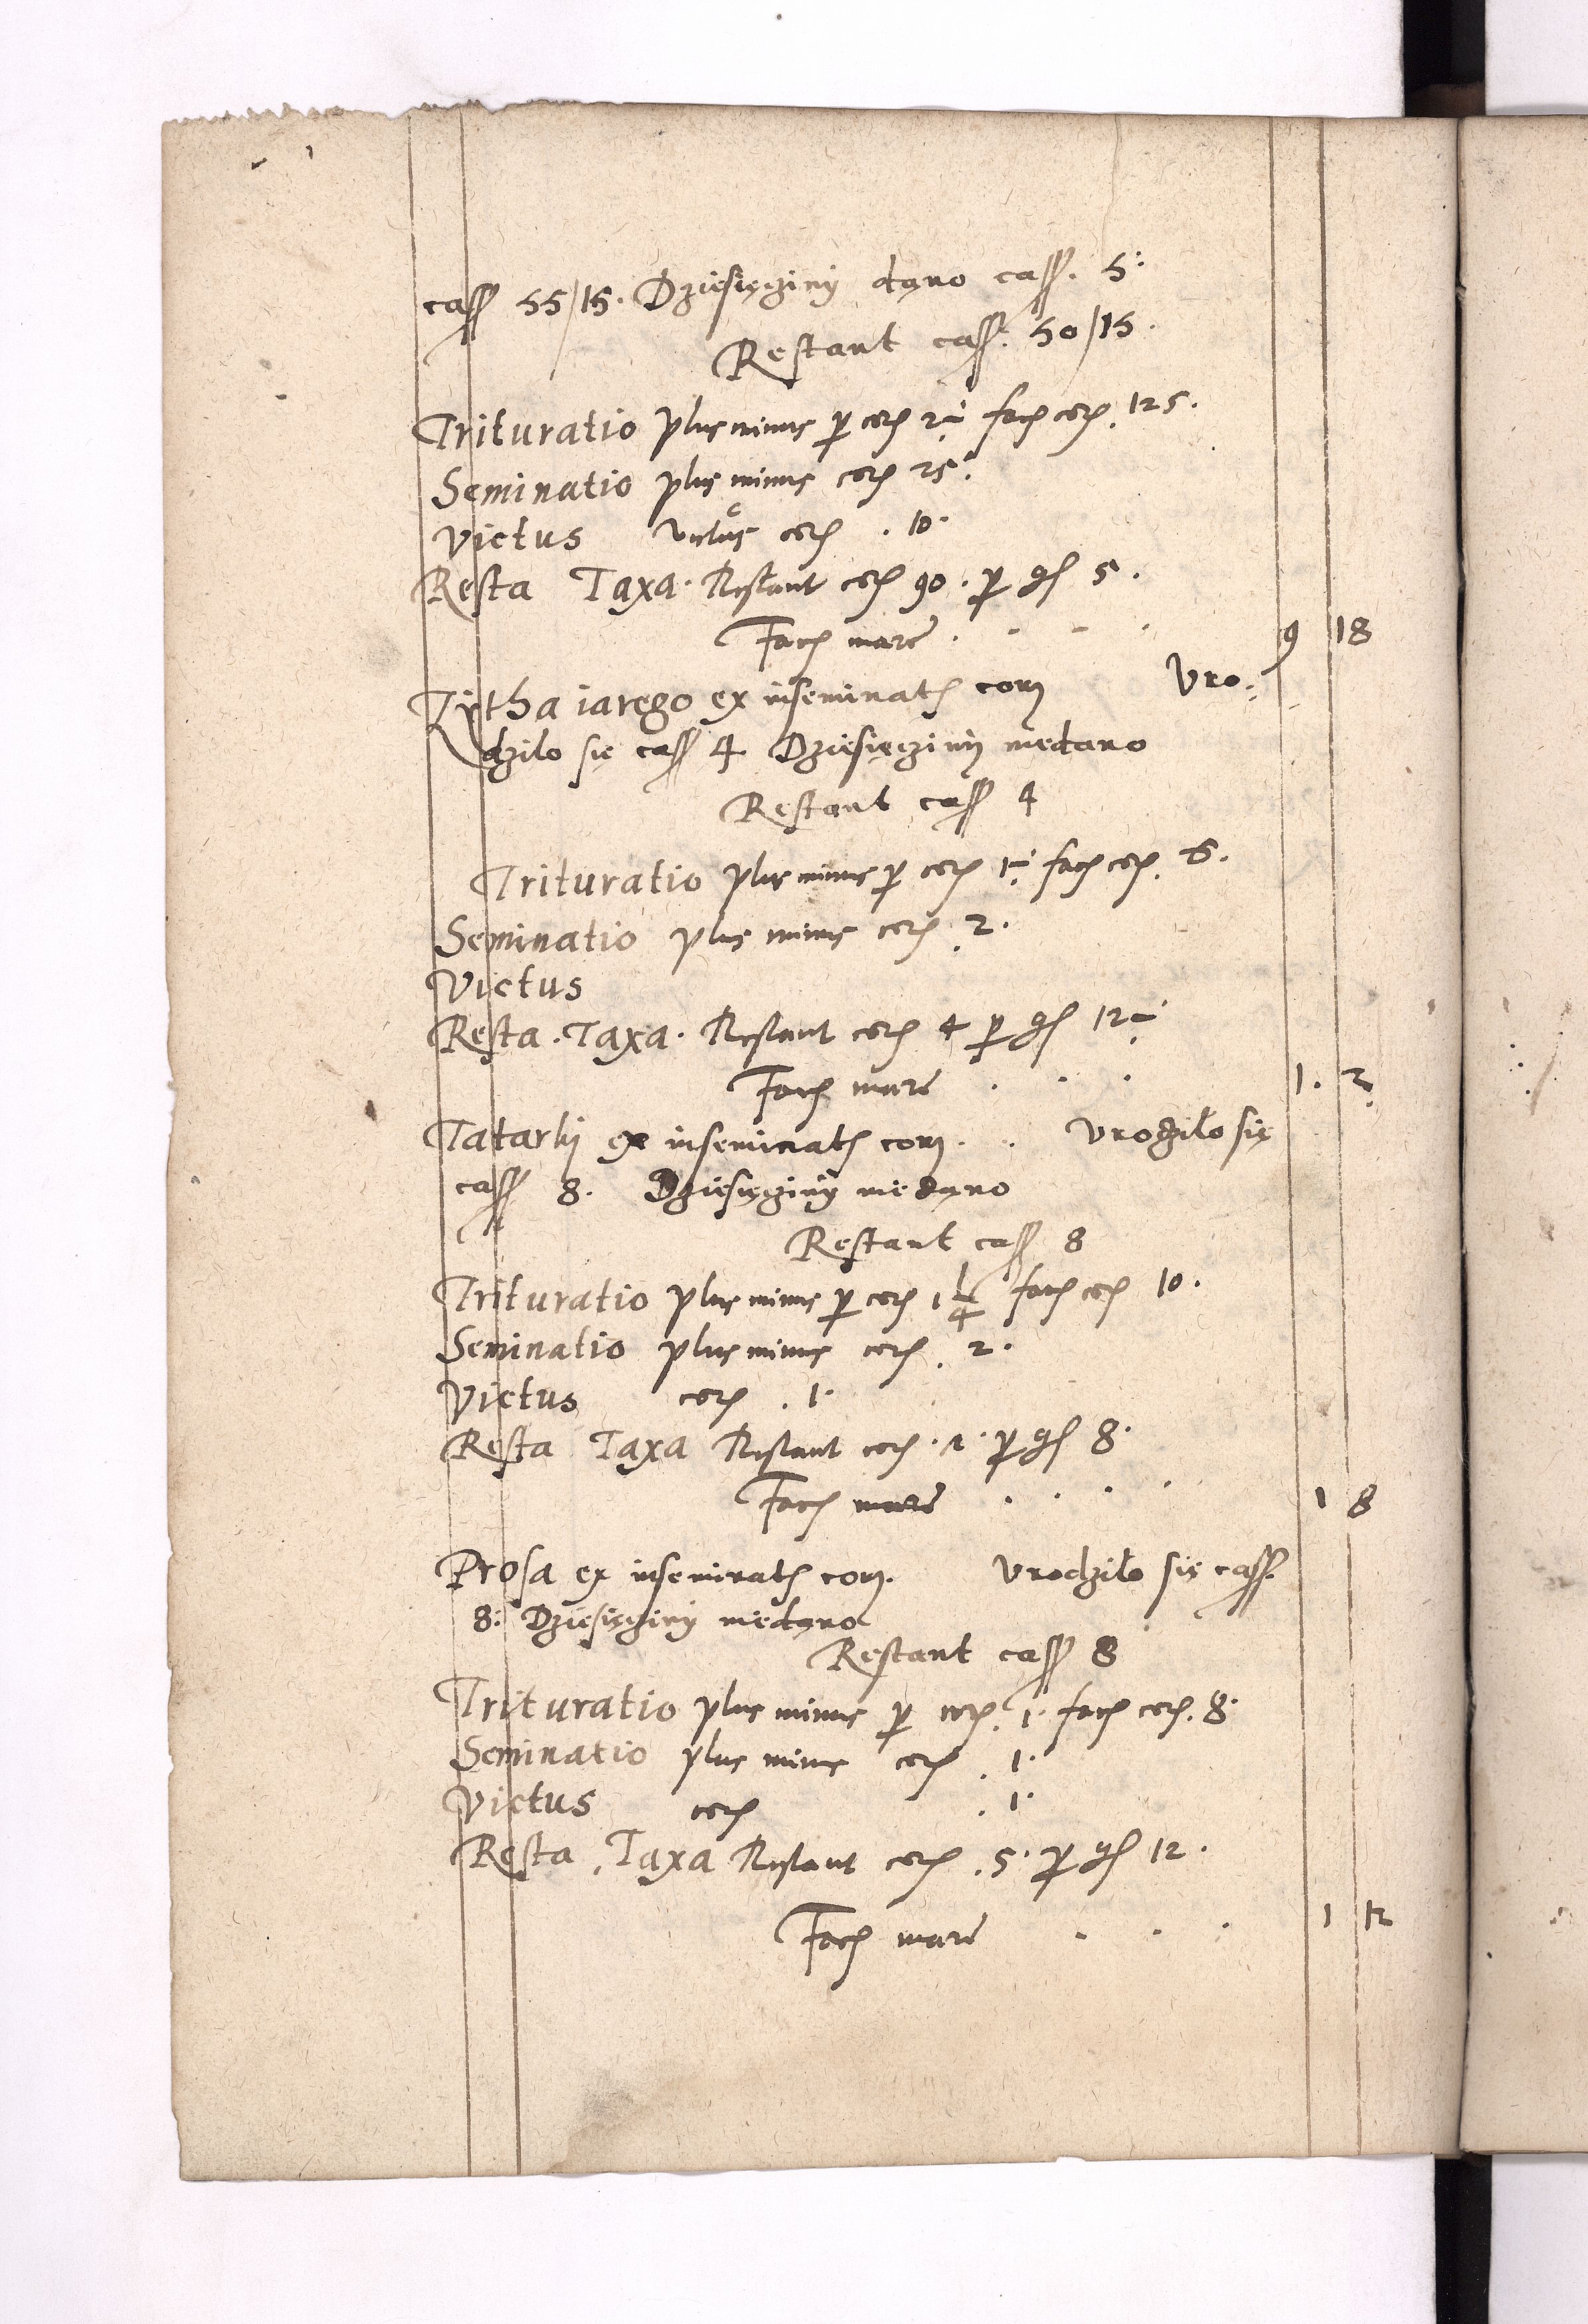 cass 55/15. Dziesięciny dano cass. 5:
Restant cass. 50/15.
Trituratio plus minus p cor 2÷ fac cor. 125.
Seminatio plus minus cor 25.
Victus victus cor . 10.
Resta Taxa. Restant cor 90. p gs 5.
Fac mare . . . . 9 18
Zytha iarego ex inseminat cor Vro:
dzilo się cass 4 Dziesięciny niedano
Restant cass 4
Trituratio plus minus p cor 1÷ fac cor. 6.
Seminatio plus minus cor. 2.
Victus
Resta. Taxa. Restant cor 4 p gs 12÷
Fac mare . . . 1. 2
Tatarki ex inseminat cor . . Vrodzilo się
cass 8. Dziesięciny niedano
Restant cass 8
Trituratio plus minus p cor 1 1/4 fac cor 10.
Seminatio plus minus cor. 2.
Victus cor . 1.
Resta Taxa Restant cor. p gs 8.
Fac mare . . . . 1 8
Prosa ex inseminat cor. Vrodzilo się cass.
8: Dziesięciny niedano
Restant cass 8
Trituratio plus minus p cor. 1. fac cor. 8.
Seminatio plus minus cor . 1.
Victus cor . 1.
Resta . Taxa Restant cor . 5. p gs 12.
Fac mare . . . 1 12